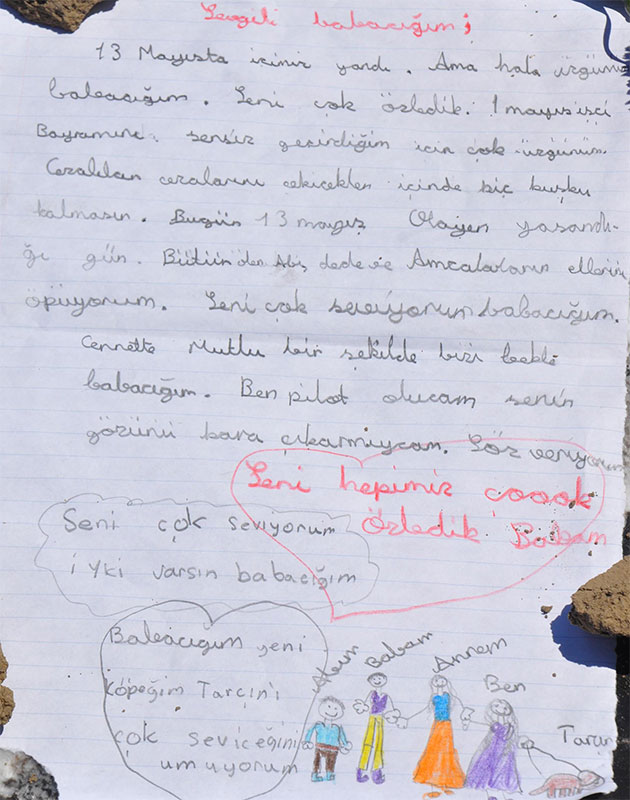 Sevgili babacığım;
13 Mayısta içimiz yandı. Ama hala üzgünüm
babacığım. Seni çok özledik. 1 mayıs işçi
Bayramını sensiz geçirdiğim için çok üzgünüm.
cezalarını çekicekler içinde hiç kuşku
kalmasın. Bugün 13 mayıs Olayın yaşandı-
ğı gün. Bütün dede ve Amcalarının ellerini
öpüyorum. Seni çok seviyorum babacığım.
Cennette Mutlu bir şekilde bizi bekle
babacığım. Ben pilot olucam senin
yüzünü kara çıkarmıycam. Söz veriyorum
Seni hepimiz çoook
özledik Babam
Seni çok seviyorum
iyki varsın babacığım
Babacığım yeni
köpeğim Tarçın'ı
çok seviceğini
umuyorum
Abim
Babam
Annem
Ben
Tarçın